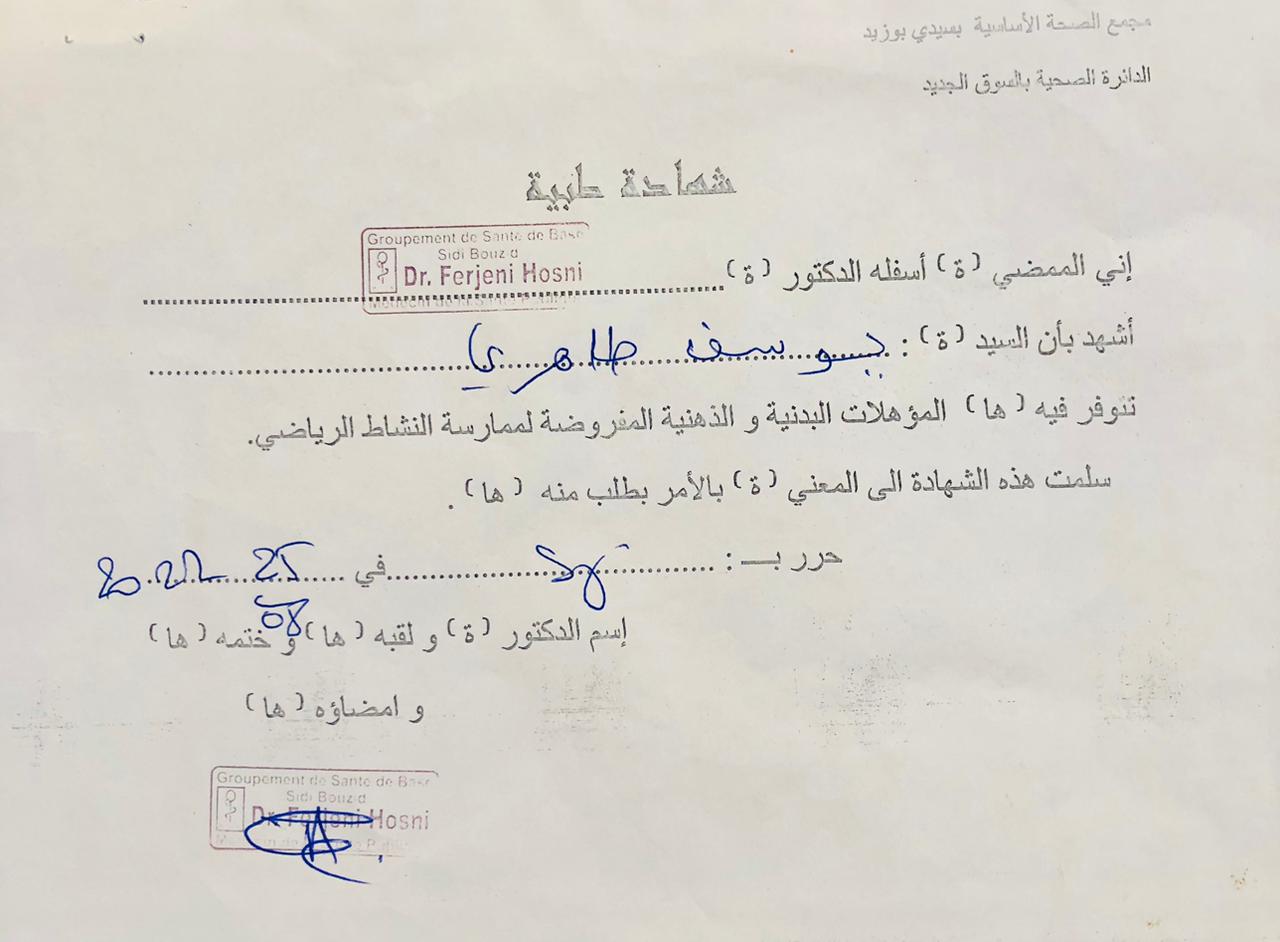 مجمع الصحة الأساسية بسيدي بوزيد
الدائرة الصحية بالسوق الجديد
شهادة طبية
Groupement de Sante de Base
Sidi Bouzid
Dr. Ferjeni Hosni
Médecin de la Santé Publique
إني الممضي (ة) أسفله الدكتور (ة)
أشهد بأن السيد (ة) : يوسف طاهري
تتوفر فيه (ها) المؤهلات البدنية و الذهنية المفروضة لممارسة النشاط الرياضي.
سلمت هذه الشهادة الى المعني (ة) بالأمر بطلب منه (ها) .
حرر بـ : في 25
08
إسم الدكتور (ة) و لقبه (ها) و ختمه (ها)
و امضاؤه (ها)
Groupement de Sante de Base
Sidi Bouzid
Dr. Ferjeni Hosni